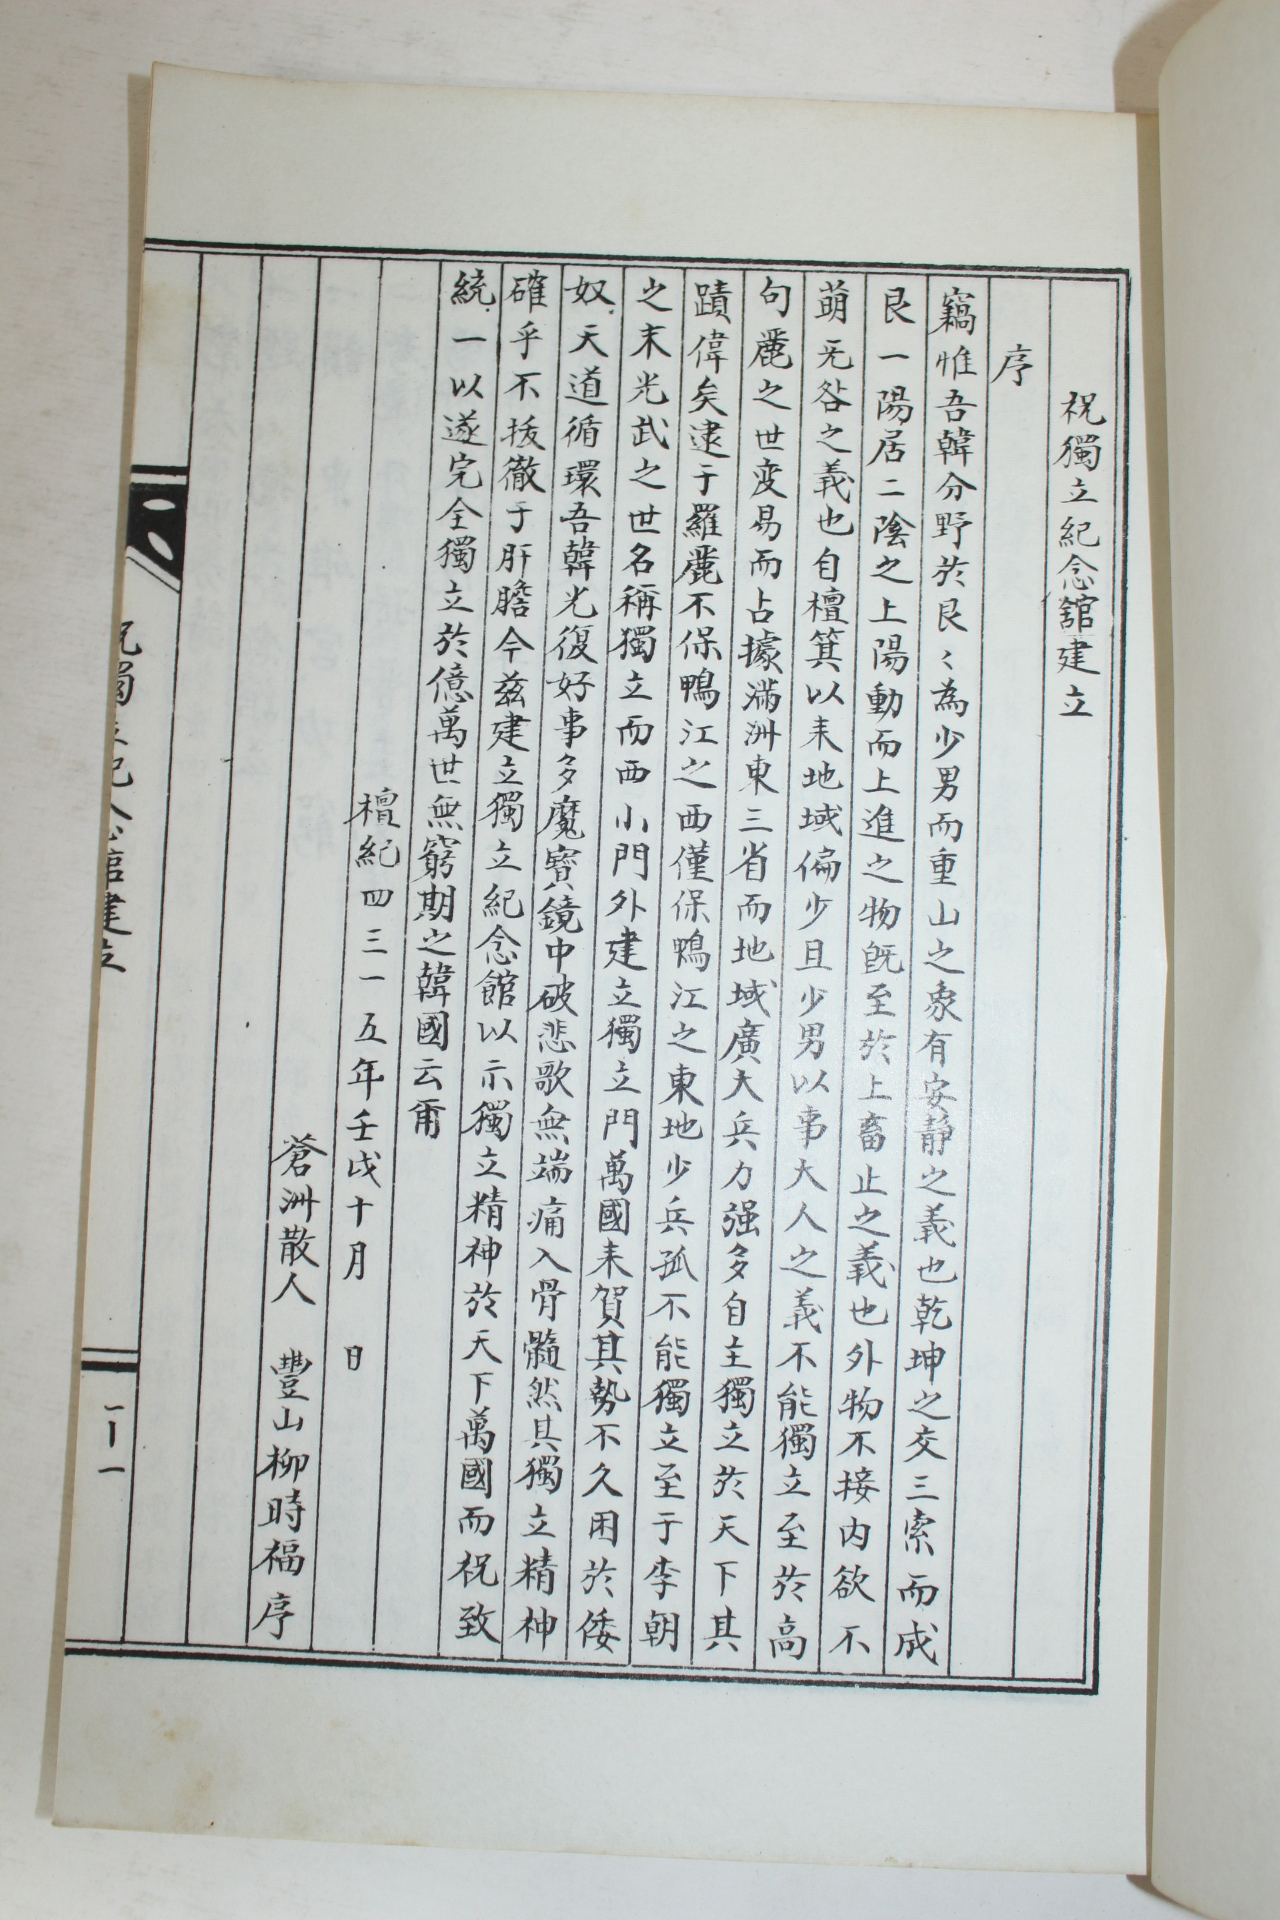 祝獨立紀念舘建立
序
竊惟吾韓分野於艮〻為少男而重山之象有安靜之義也乾坤之交三索而成
艮一陽居二陰之上陽動而上進之物旣至於上畜止之義也外物不接內欲不
萌旡咎之義也自檀箕以来地域偏少且少男以事大人之義不能獨立至於高
句麗之世変易而占據滿洲東三省而地域廣大兵力强多自主獨立於天下其
蹟偉矣逮于羅麗不保鴨江之西僅保鴨江之東地少兵孤不能獨立至于李朝
之末光武之世名稱獨立而西小門外建立獨立門萬國来賀其勢不久困於倭
奴天道循環吾韓光復好事多魔寶鏡中破悲歌無端痛入骨髓然其獨立精神
確乎不拔徹于肝膽今兹建立獨立紀念館以示獨立精神於天下萬國而祝致
統一以遂完全獨立於億萬世無窮期之韓國云爾
檀紀四三一五年壬戌十月　日
蒼洲散人　豐山柳時福序
祝獨立紀念館建立
一丁一